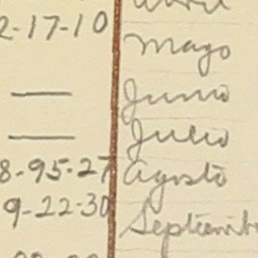 Abril
2-17-10 Mayo
— Junio
— Julio
8-95-27 Agosto
9-22-30 Septiemb